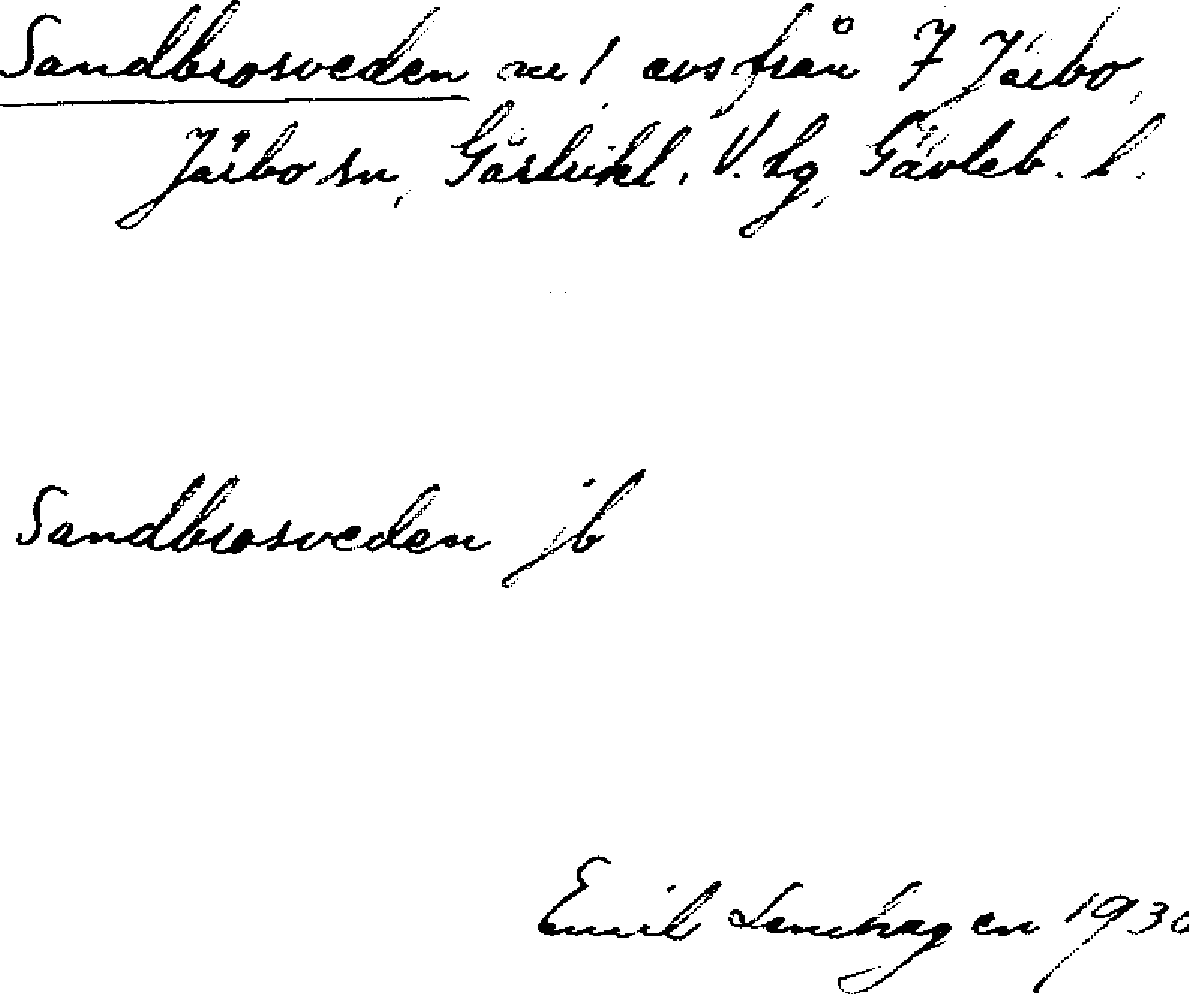 Sandbrosveden nr 1 avs från 7 Järbo,
Järbo sn, Gästrikl. V. hg, Gävleb. l.
Sandbrosveden jb
Emil Lenhagen 1930